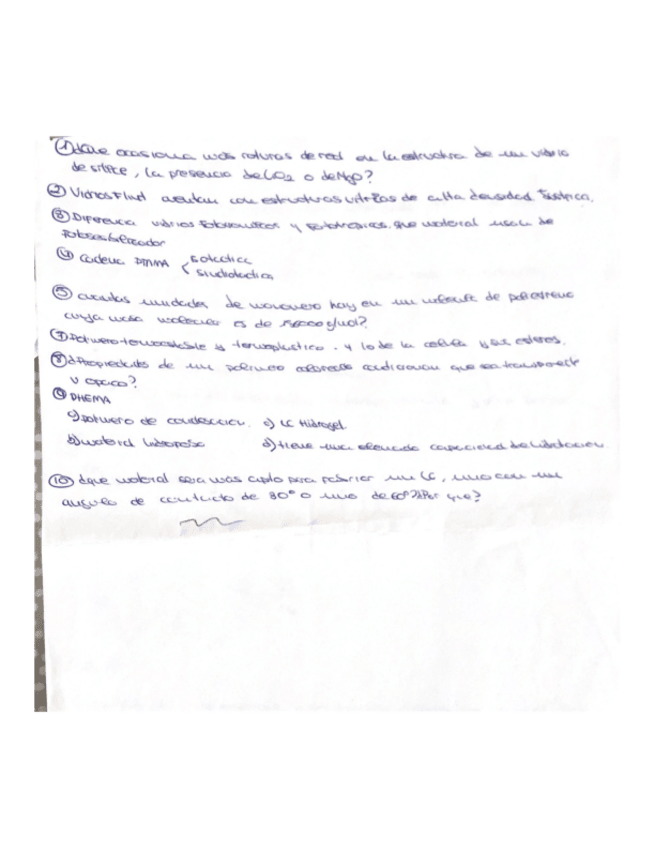 ① ¿Que ocasiona más roturas de red en la estructura de un vidrio
de sílice, la presencia de o de MgO?
② Vidrios Flint cuentan con estructuras vítreas de alta densidad
③ Diferencia vidrios y . Que material usan de
fotosensibilizador
④ Cadena PMMA isotactica
sindiotactica
⑤ cuantas unidades de monomero hay en un de poliestireno
cuya masa molecular es de g/mol?
⑦ Polimero termoestable y termoplastico. y lo de la y sus esteres.
⑧ ¿Propiedades de un polimero condicionan que sea transparente
u opaco?
⑨ PHEMA
a) polimero de condensacion. c) LC Hidrogel
b) material d) tiene una elevada capacidad de hidratacion.
⑩ ¿que material sera mas apto para fabricar una LC, uno con un
angulo de contacto de 30° o uno de 60°? ¿Por que?